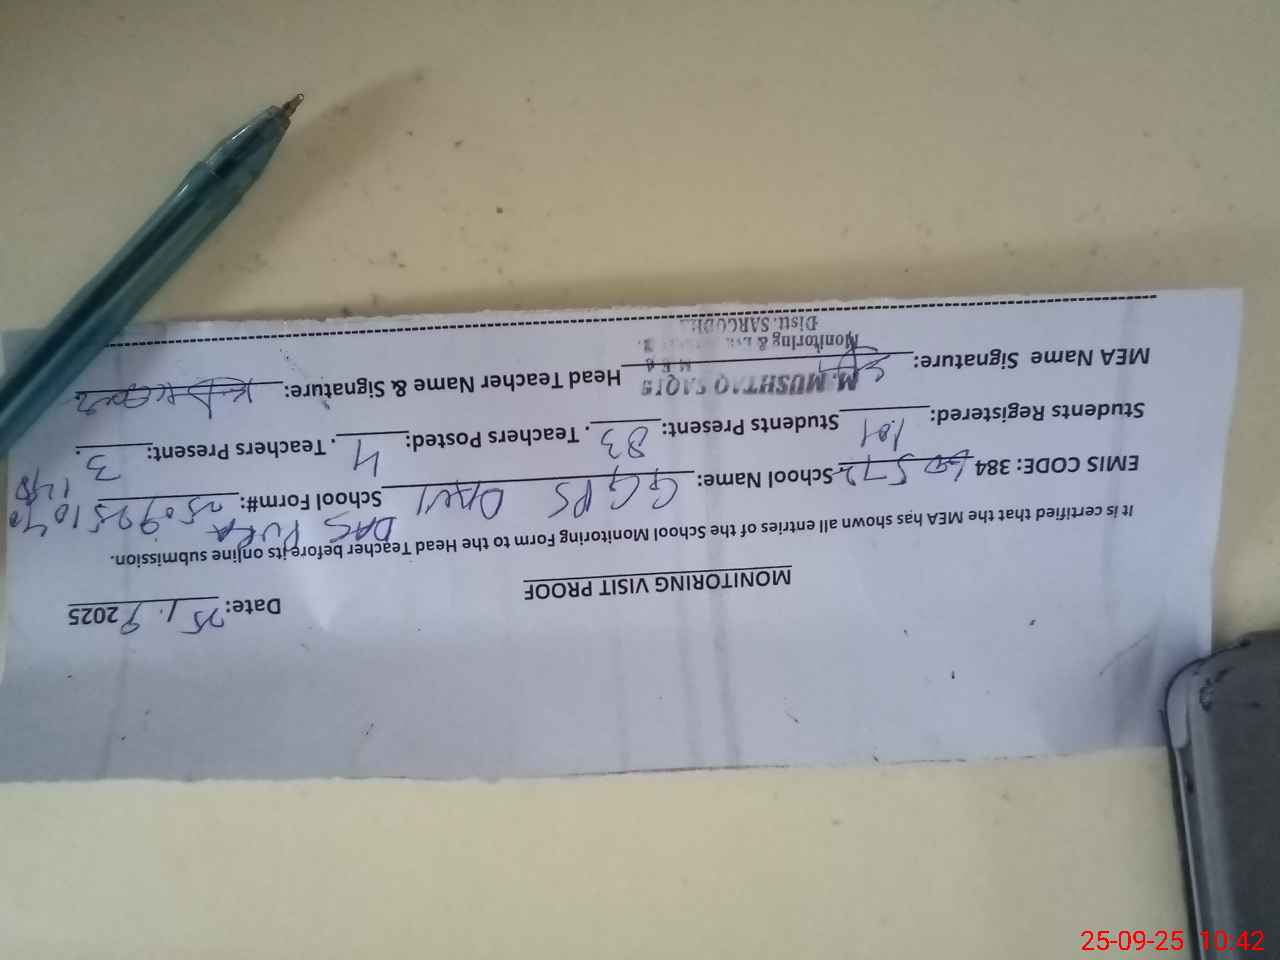 MONITORING VISIT PROOF
Date: 25/.9 2025
It is certified that the MEA has shown all entries of the School Monitoring Form to the Head Teacher before its online submission.
EMIS CODE: 384 572 School Name: GGPS School Form#: 250925
DAS PURA
Students Registered: 101 Students Present: 83. Teachers Posted: 4. Teachers Present: 3.
MEA Name Signature: Head Teacher Name & Signature:
M. MUSHTAQ SAQIB
Monitoring &
Distt. SARGODHA
25-09-25 10:42